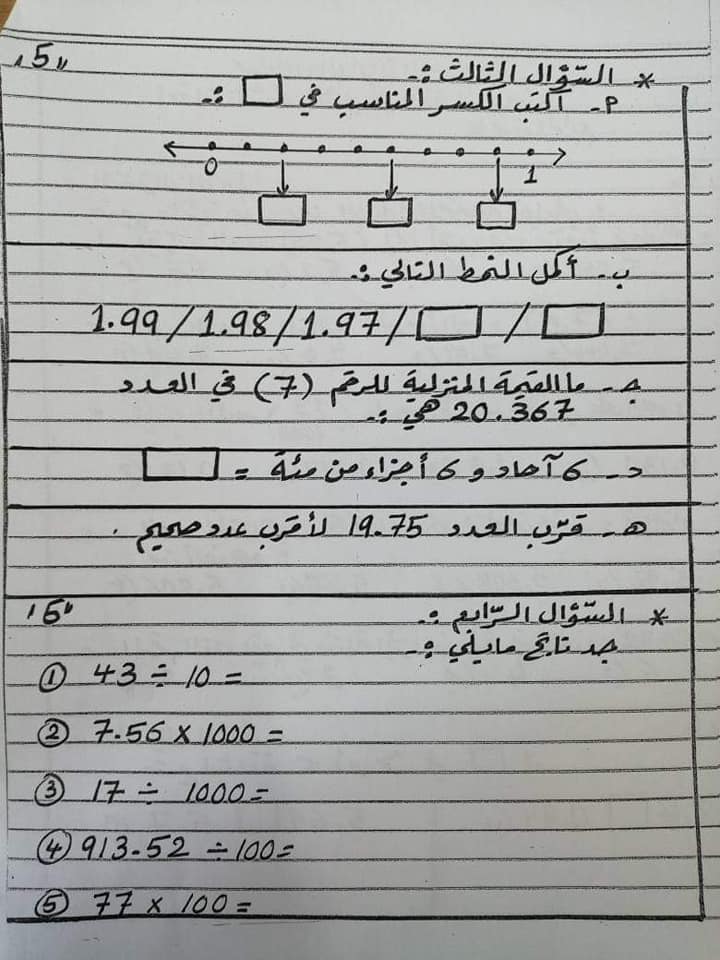 * السّؤال الثالث :- "5"
P- اكتب الكسر المناسب في :-
0 1
ب- أكمل النمط التالي :-
1.99 / 1.98 / 1.97 / /
جـ- ما القيمة المنزلية للرقم (7) في العدد
20.367 هي :-
د- 6 آحاد و 6 أجزاء من مئة =
هـ- قرّب العدد 19.75 لأقرب عدد صحيح .
* السّؤال الرّابع :- "5"
جد ناتج مايلي :-
① 43 ÷ 10 =
② 7.56 × 1000 =
③ 17 ÷ 1000 =
④ 913.52 ÷ 100 =
⑤ 77 × 100 =